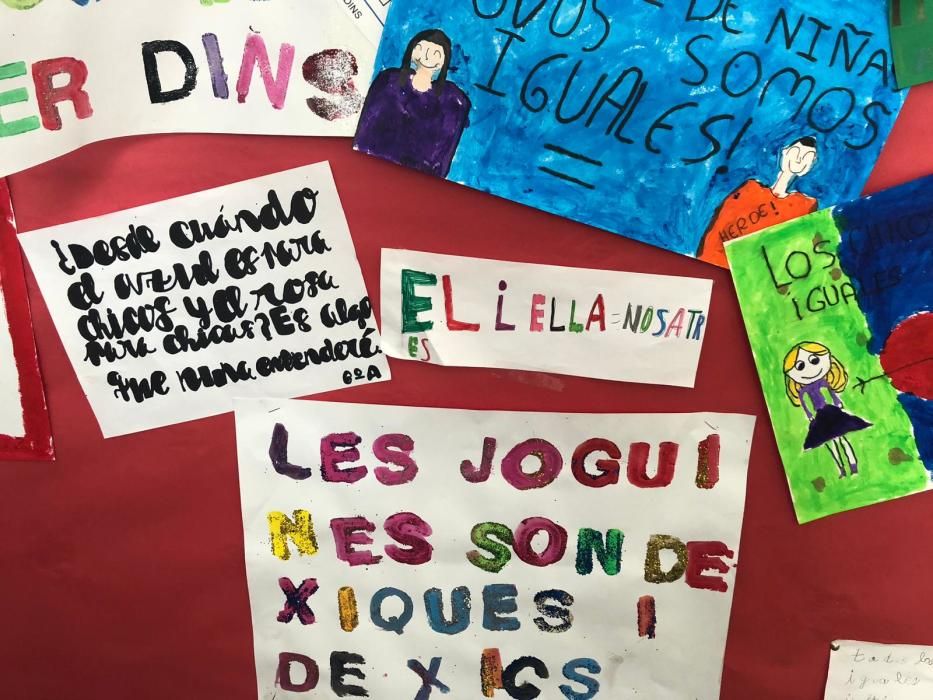 ER DINS
DINS
DE NIÑA
SOMOS
IGUALES!
HEROE!
LOS CHICO
IGUALES
¿Desde cuándo
el azul es para
chicos y el rosa
para chicas? Es algo
que nunca entenderé.
6º A
EL i ELLA = NOSATR
ES
LES JOGUI
NES SON DE
XIQUES I
DE XICS
todos los
iguales